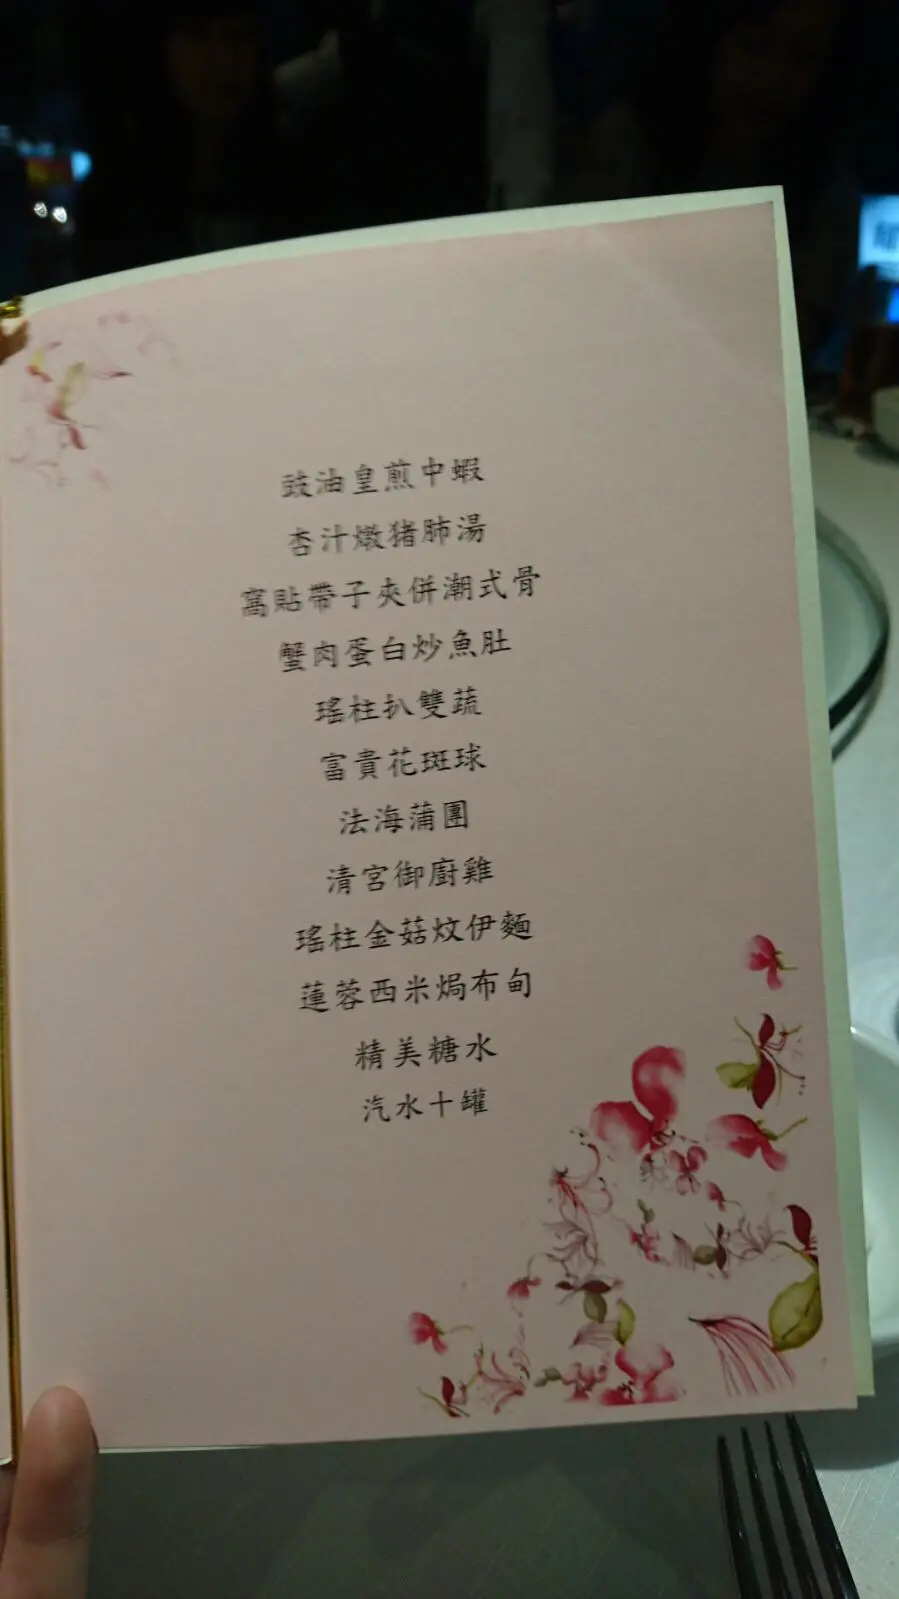 豉油皇煎中蝦
杏汁燉猪肺湯
窩貼帶子夾併潮式骨
蟹肉蛋白炒魚肚
瑤柱扒雙蔬
富貴花斑球
法海蒲團
清宮御廚雞
瑤柱金菇炆伊麵
蓮蓉西米焗布甸
精美糖水
汽水十罐